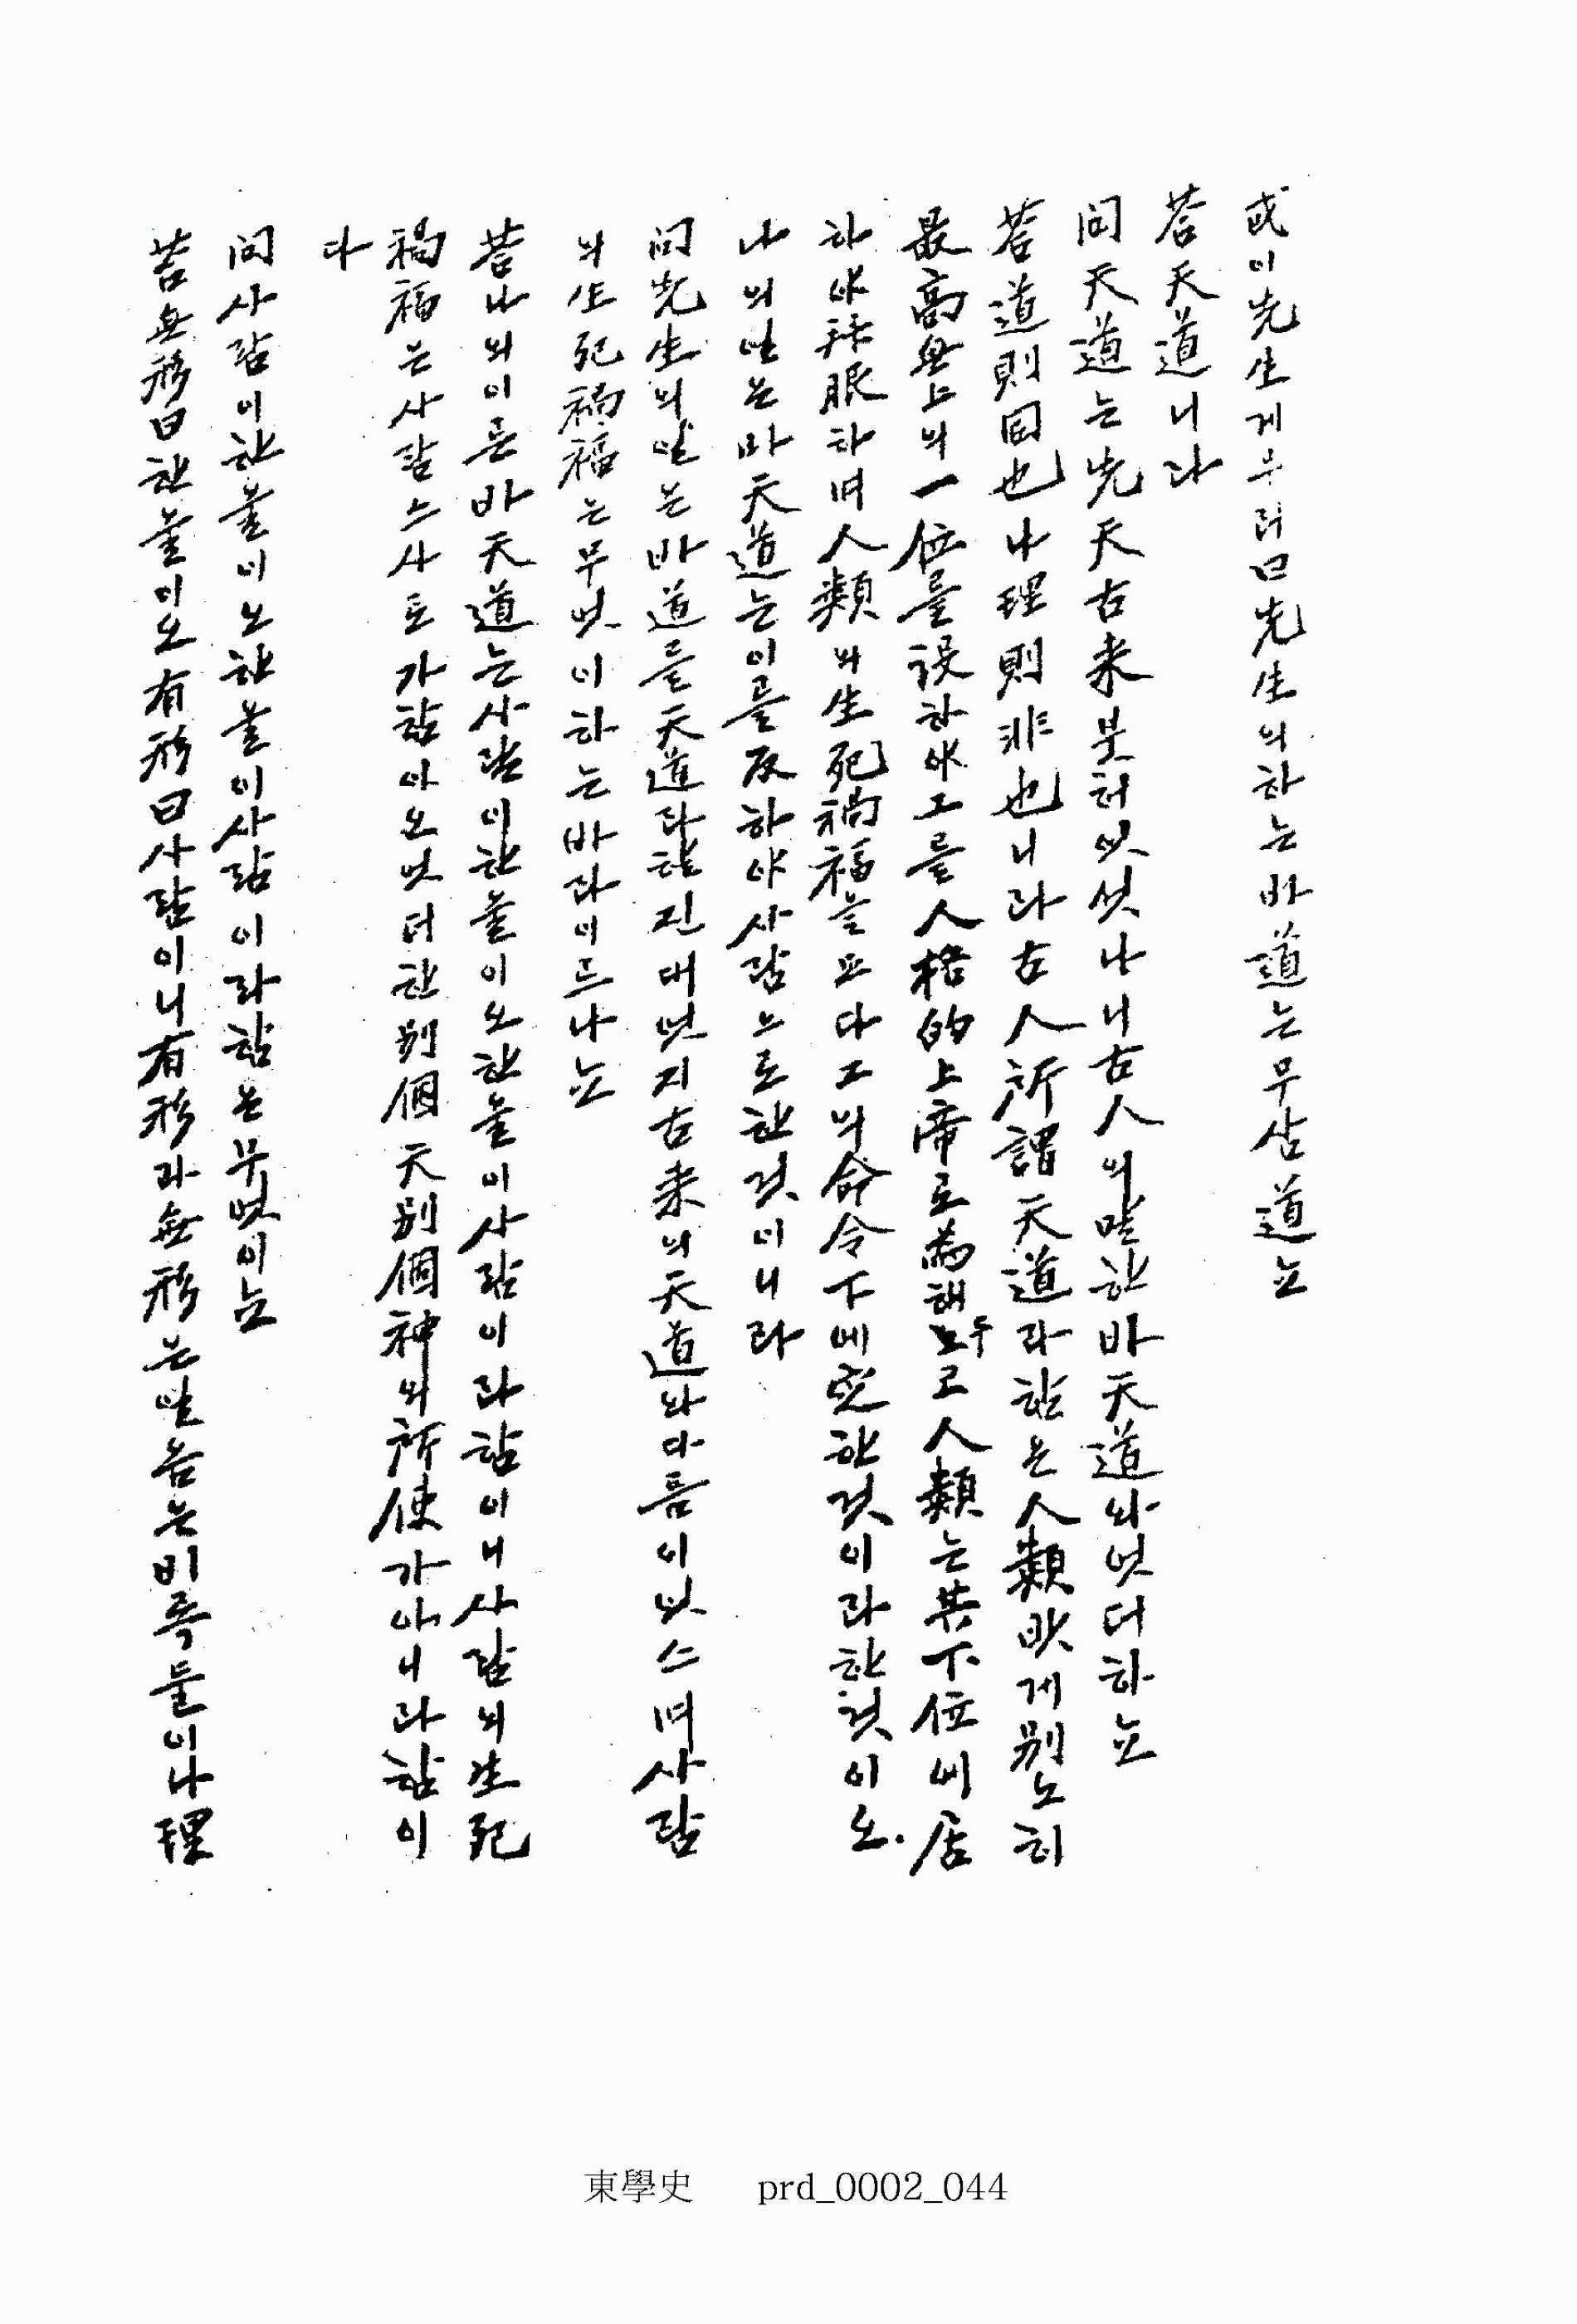 或이先生게무러曰先生의하는바道는무삼道뇨
答天道니라
問天道는先天古来붓허잇섯나니古人의말한바天道와엇더하뇨
答道則同也나理則非也니라古人所謂天道라함은人類밧게別노히
最高無上의一位를設하야그를人格的上帝로為해노두고人類는其下位에居
하야拜服하며人類의生死禍福을모다그의命令下에定한것이라한것이오
나의말은바天道는이를反하야사람느로한것이니라
問先生의말은바道를天道라할진대엇지古来의天道와다름이잇스며사람
의生死禍福는무엇이하는바라이르나뇨
答나의이른바天道는사람이한울이오한울이사람이라함이니사람의生死
禍福는사람느사로가함아오엇더한別個天別個神의所使가아니라함이
다
問사람이한울이노한울이사람이라함은무엇이뇨
答無形曰한울이오有形曰사람이니有形과無形은말음는비록둘이나理
東學史 prd_0002_044